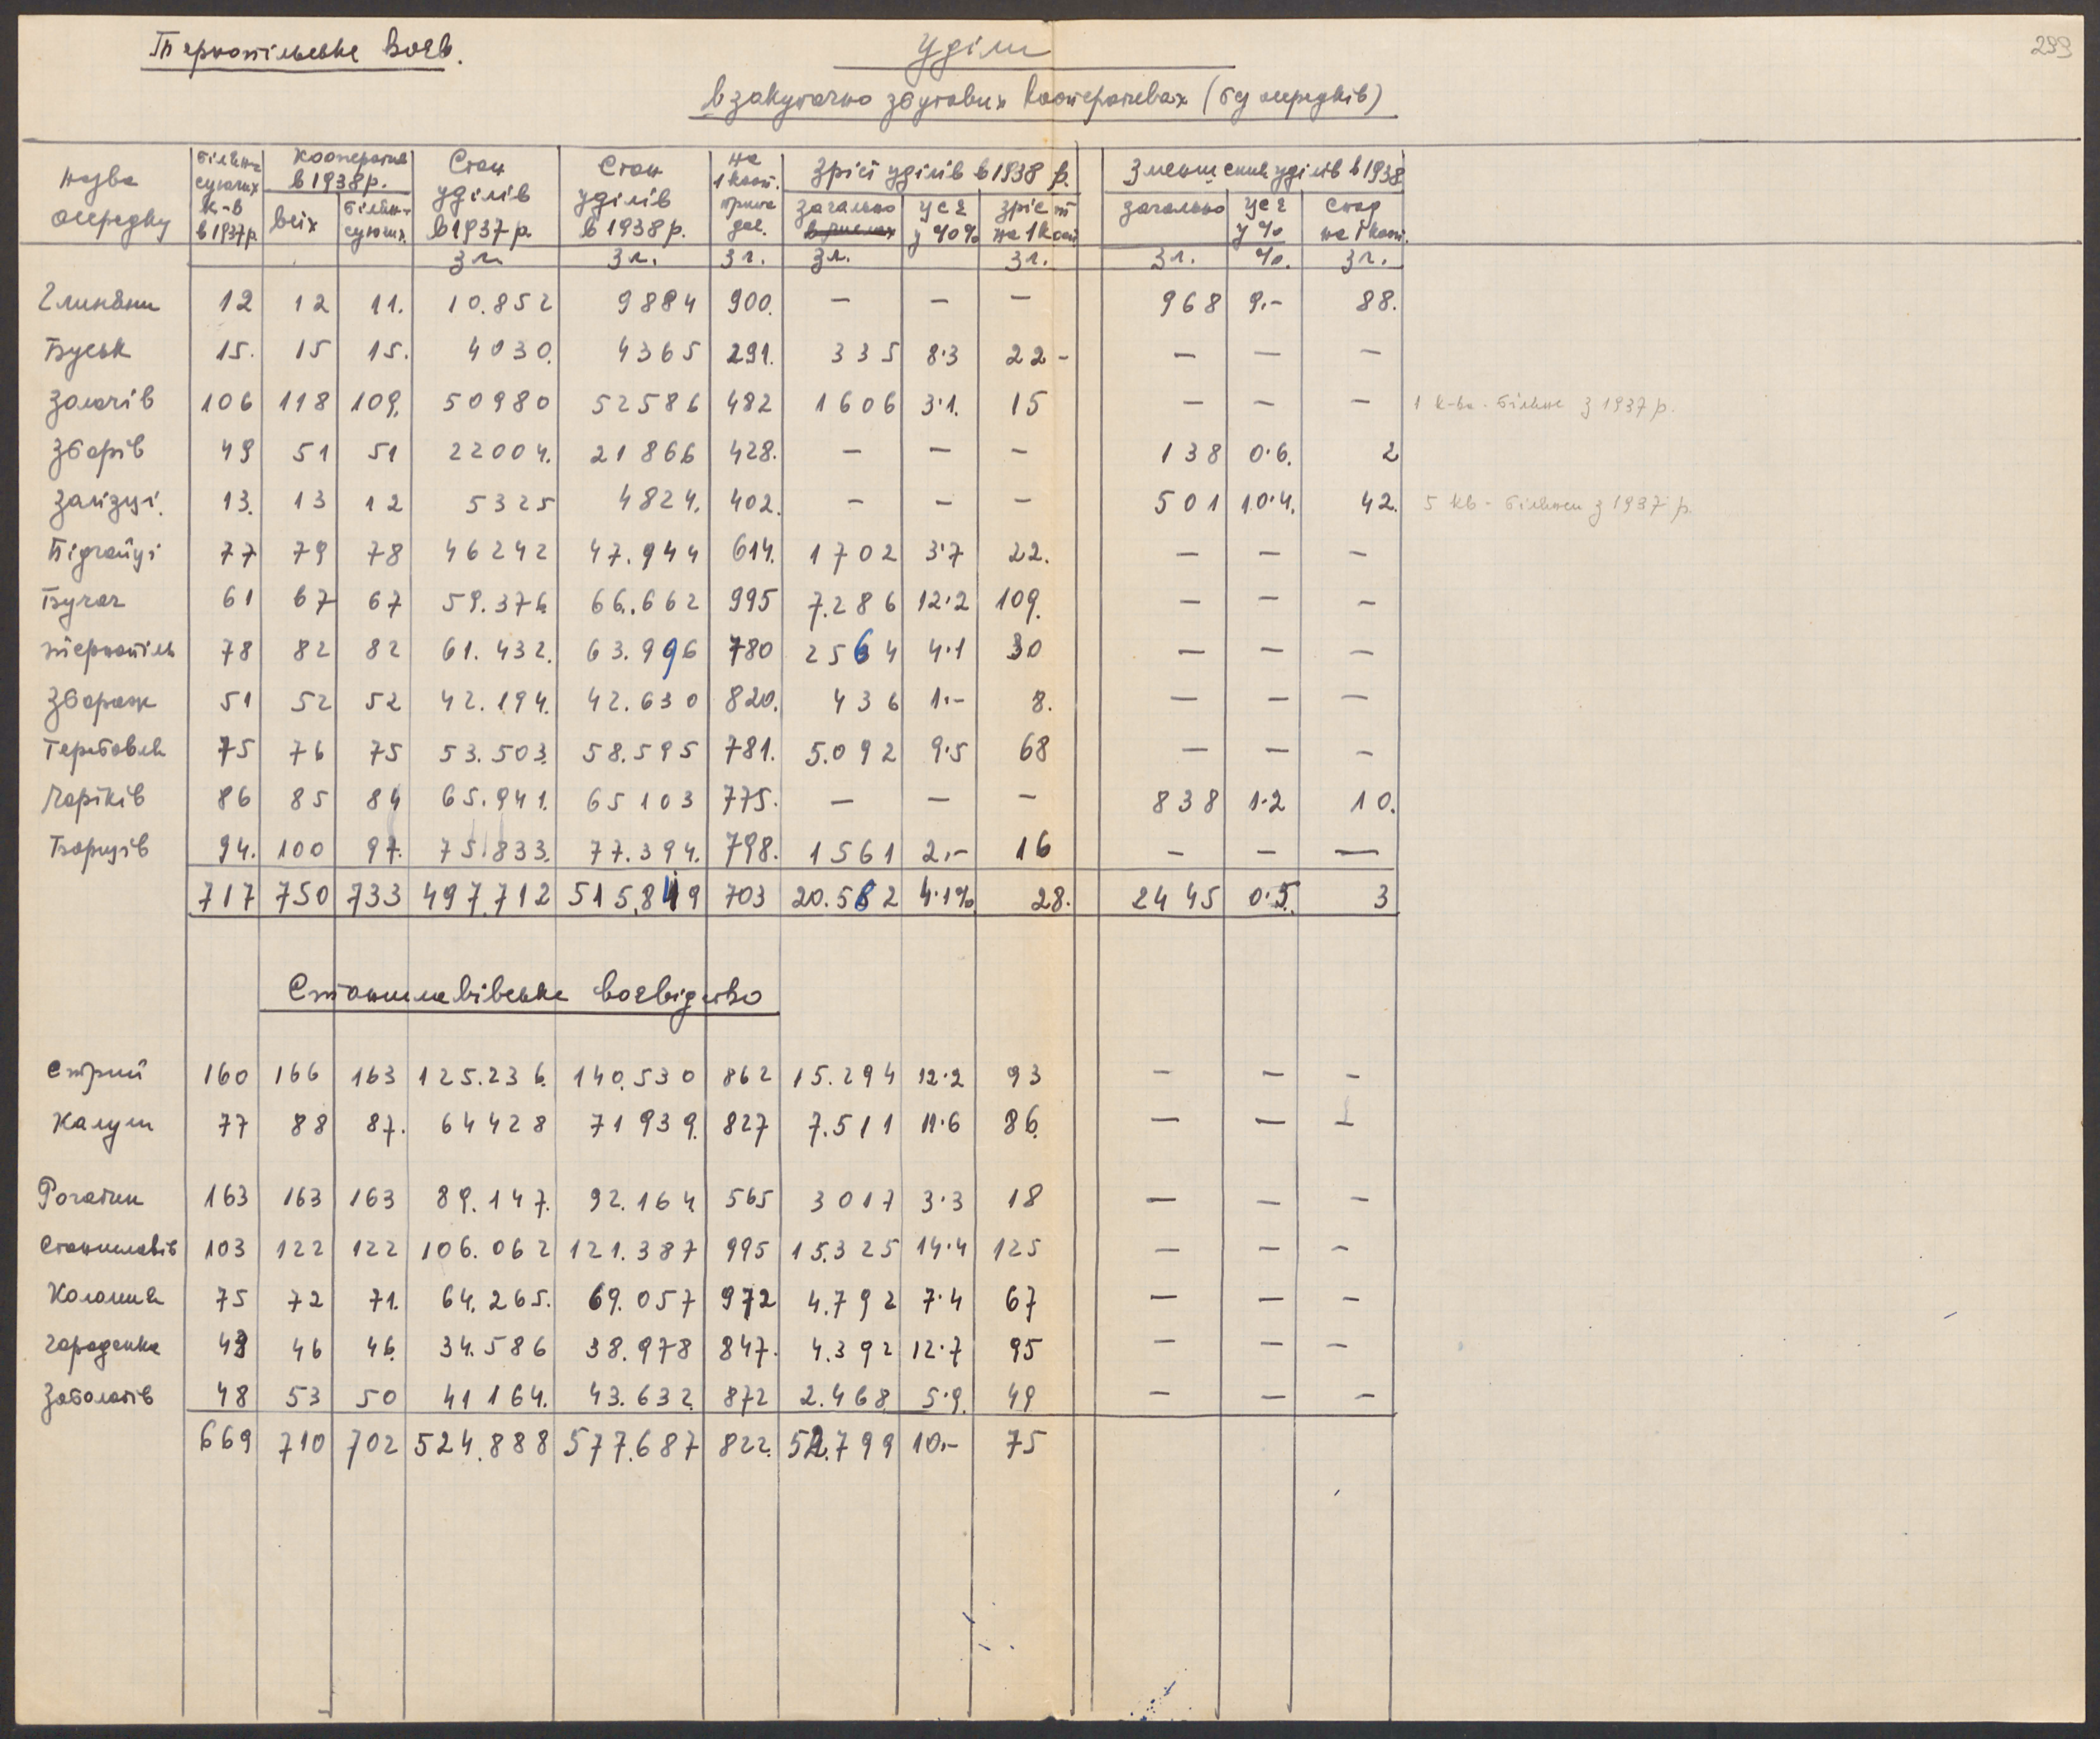 299
Тернопільське Воєв.
Уділи
в закупочно збутових кооперативах (бу осередків)
Назва осередку | білянсуючих к-в в 1937 р. | Кооператив в 1938 р. всіх | білянсуючих | Стан уділів в 1937 р. | Стан уділів в 1938 р. | на 1 кооп. припадає | Зріст уділів в 1938 р. загально | усе у %% | зріст на 1 кооп | Зменшення уділів в 1938 загально | усе у % | спад на 1 кооп.
Зл. | Зл. | Зл. | Зл. | Зл. | Зл. | %. | Зл.
Глиняни 12 12 11. 10.852 9884 900. — — — 968 9.- 88.
Буськ 15. 15 15. 4030. 4365 291. 335 8·3 22- — — —
Золочів 106 118 109. 50980 52586 482 1606 3·1. 15 — — — 1 к-ва - більше з 1937 р.
Зборів 49 51 51 22004. 21866 428. — — — 138 0·6. 2
Залізці. 13. 13 12 5325 4824. 402. — — — 501 10·4. 42. 5 кв - більше з 1937 р.
Підгайці 77 79 78 46242 47.944 614. 1702 3·7 22. — — —
Бучач 61 67 67 59.376 66.662 995 7.286 12·2 109. — — —
Тернопіль 78 82 82 61.432. 63.996 780 2564 4·1 30 — — —
Збараж 51 52 52 42.194. 42.630 820. 436 1.- 8. — — —
Теребовля 75 76 75 53.503. 58.595 781. 5.092 9·5 68 — — —
Чортків 86 85 84 65.941. 65103 775. — — — 838 1·2 10.
Борщів 94. 100 97. 75.833. 77.394. 798. 1561 2.- 16 — — —
717 750 733 497.712 515.849 703 20.582 4·1% 28. 2445 0·5. 3
Станиславівське воєвідство
Стрий 160 166 163 125.236. 140.530 862 15.294 12·2 93 — — —
Калуш 77 88 87. 64428 71939. 827 7.511 11·6 86. — — —
Рогатин 163 163 163 89.147. 92.164 565 3017 3·3 18 — — —
Станиславів 103 122 122 106.062 121.387 995 15.325 14·4 125 — — —
Коломия 75 72 71. 64.265. 69.057 972 4.792 7·4 67 — — —
Городенка 43 46 46. 34.586 38.978 847. 4.392 12·7 95 — — —
Заболотів 48 53 50 41164. 43.632. 872 2.468 5·9. 49 — — —
669 710 702 524.888 577.687 822. 52.799 10.- 75